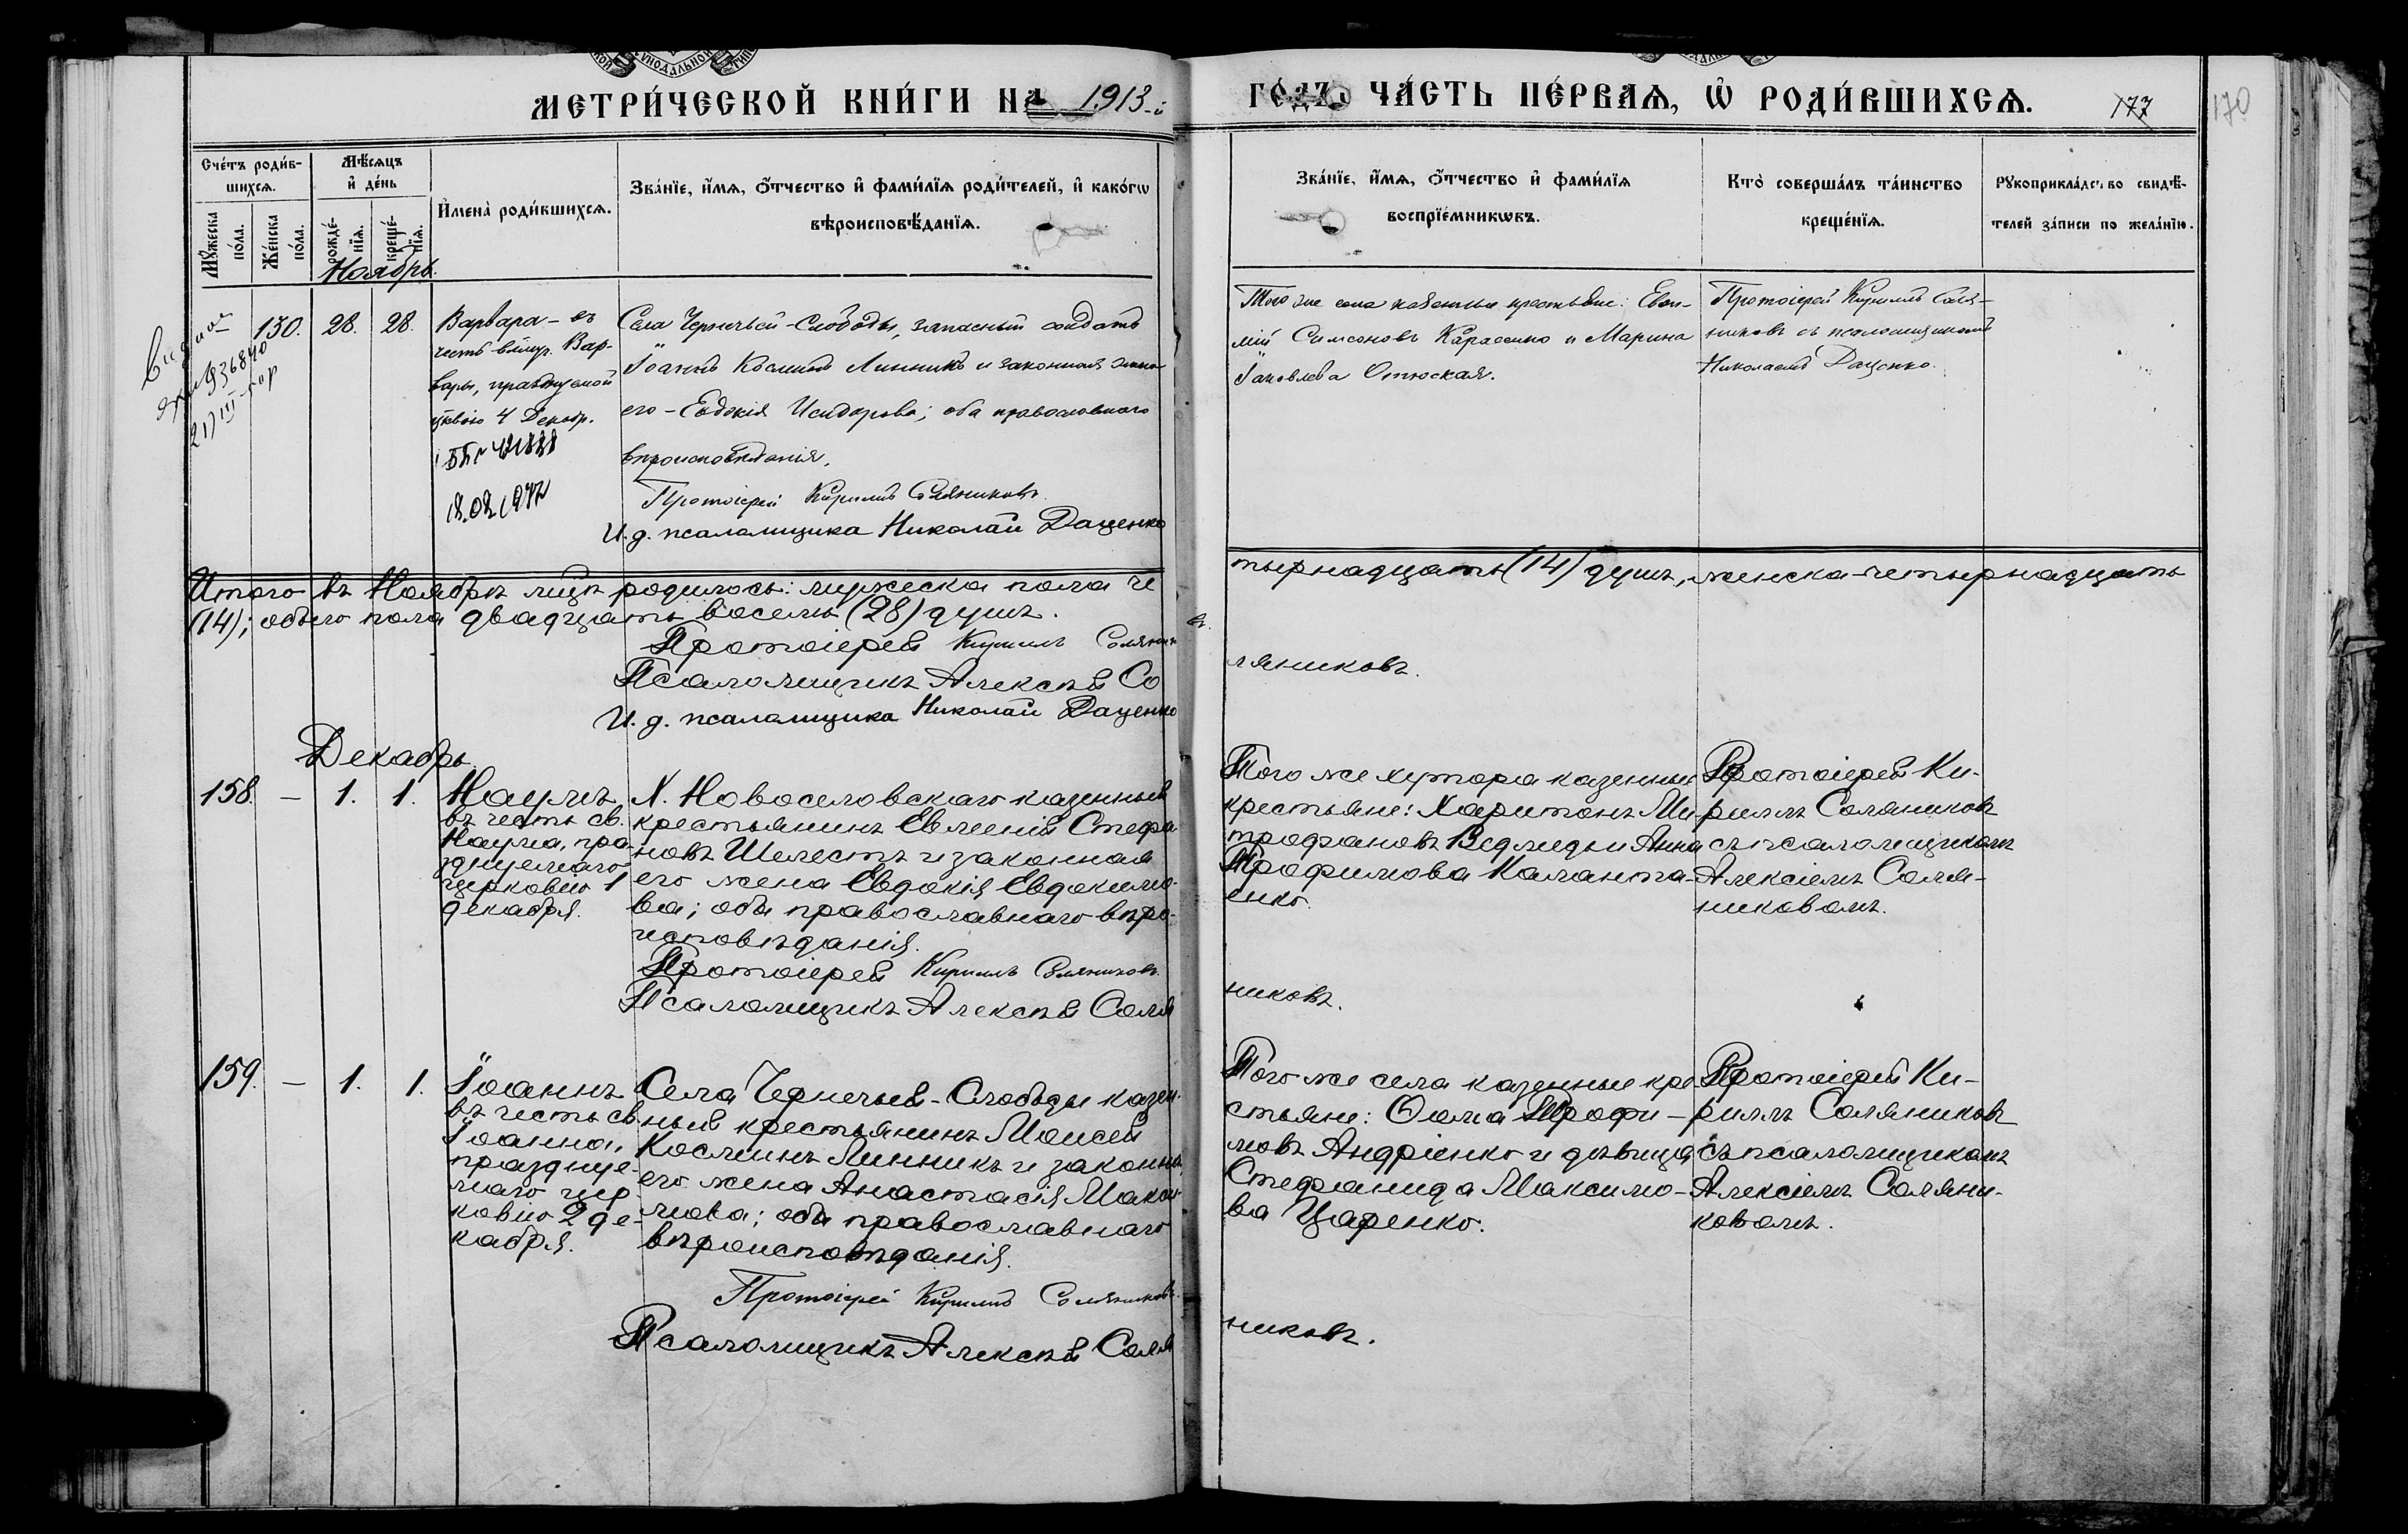 МЕТРИ́ЧЕСКОЙ КНИ́ГИ НА 1913-й
ГО́ДЪ, ЧА́СТЬ ПЕ́РВАѦ, Ѡ҆ РОДИ́ВШИХСѦ.
177
170
Сче́тъ роди́в-
шихсѧ.
Мꙋ́жеска
по́ла.
Же́нска
по́ла.
Мѣ́сѧцъ
и҆ де́нь
рожде́-
нїѧ.
креще́-
нїѧ.
И҆мена̀ роди́вшихсѧ.
Зва́нїе, и҆́мѧ, ѻ҆́тчество и҆ фами́лїѧ роди́телей, и҆ како́гѡ
вѣроисповѣ́данїѧ.
Зва́нїе, и҆́мѧ, ѻ҆́тчество и҆ фами́лїѧ
воспрїе́мникѡвъ.
Кто̀ соверша́лъ та́инство
креще́нїѧ.
Рꙋкоприкла́дство свидѣ́-
телей за́писи по жела́нїю.
Ноябрь.
130. 28. 28.
Варвара - въ
честь влмуч. Вар-
вары, празднуемой
церквію 4 Декабр.
18.02.
Села Чернечьей-Слободы, запасный солдатъ
Іоаннъ Косминъ Линникъ и законная жена
его - Евдокія Исидорова; оба православнаго
вѣроисповѣданія.
Протоіерей Кириллъ Соляниковъ
И. д. псаломщика Николай Даценко
Того же села казенные крестьяне: Евѳи-
мій Симеоновъ Карасенко и Марина
Іаковлева
Протоіерей Кириллъ Соля-
никовъ съ псаломщикомъ
Николаемъ Даценко.
Итого въ Ноябрѣ мцѣ родилось: мужеска пола че
тырнадцать (14) душъ, женска-четырнадцать
(14); обоего пола двадцать восемь (28) душъ.
Протоіерей Кириллъ Соляник
въ.
Псаломщикъ Алексѣй Со
ляниковъ.
И. д. псаломщика Николай Даценко
Декабрь.
158. — 1. 1.
Наумъ
въ честь св.
Наума, пра-
зднуемаго
церковію 1
декабря.
Х. Новоселовскаго казенный
крестьянинъ Евгеній Стефа-
новъ Шелестъ и законная
его жена Евдокія Евдокимо-
ва; оба православнаго вѣро-
исповѣданія.
Протоіерей Кириллъ Соляниковъ.
Псаломщикъ Алексѣй Соля
никовъ.
Того же хутора казенные
крестьяне: Харитонъ Ми-
трофановъ Ведмедь и Анна
Трофимова Каланта-
енко.
Протоіерей Ки-
риллъ Соляниковъ
съ псаломщикомъ
Алексіемъ Соля-
никовымъ.
159. — 1. 1.
Іоаннъ
въ честь св.
Іоанна,
праздуе-
маго цер-
ковію 2 де-
кабря.
Села Чернечьей-Слободы казен-
ный крестьянинъ Моисей
Косминъ Линникъ и законная
его жена Анастасія Макси-
мова; оба православнаго
вѣроисповѣданія.
Протоіерей Кириллъ Соляниковъ.
Псаломщикъ Алексѣй Соля
никовъ.
Того же села казенные кре-
стьяне: Ѳома Трофи-
мовъ Андріенко и дѣвица
Стефанида Максимо-
ва Царенко.
Протоіерей Ки-
риллъ Соляниковъ
съ псаломщикомъ
Алексіемъ Соляни-
ковымъ.